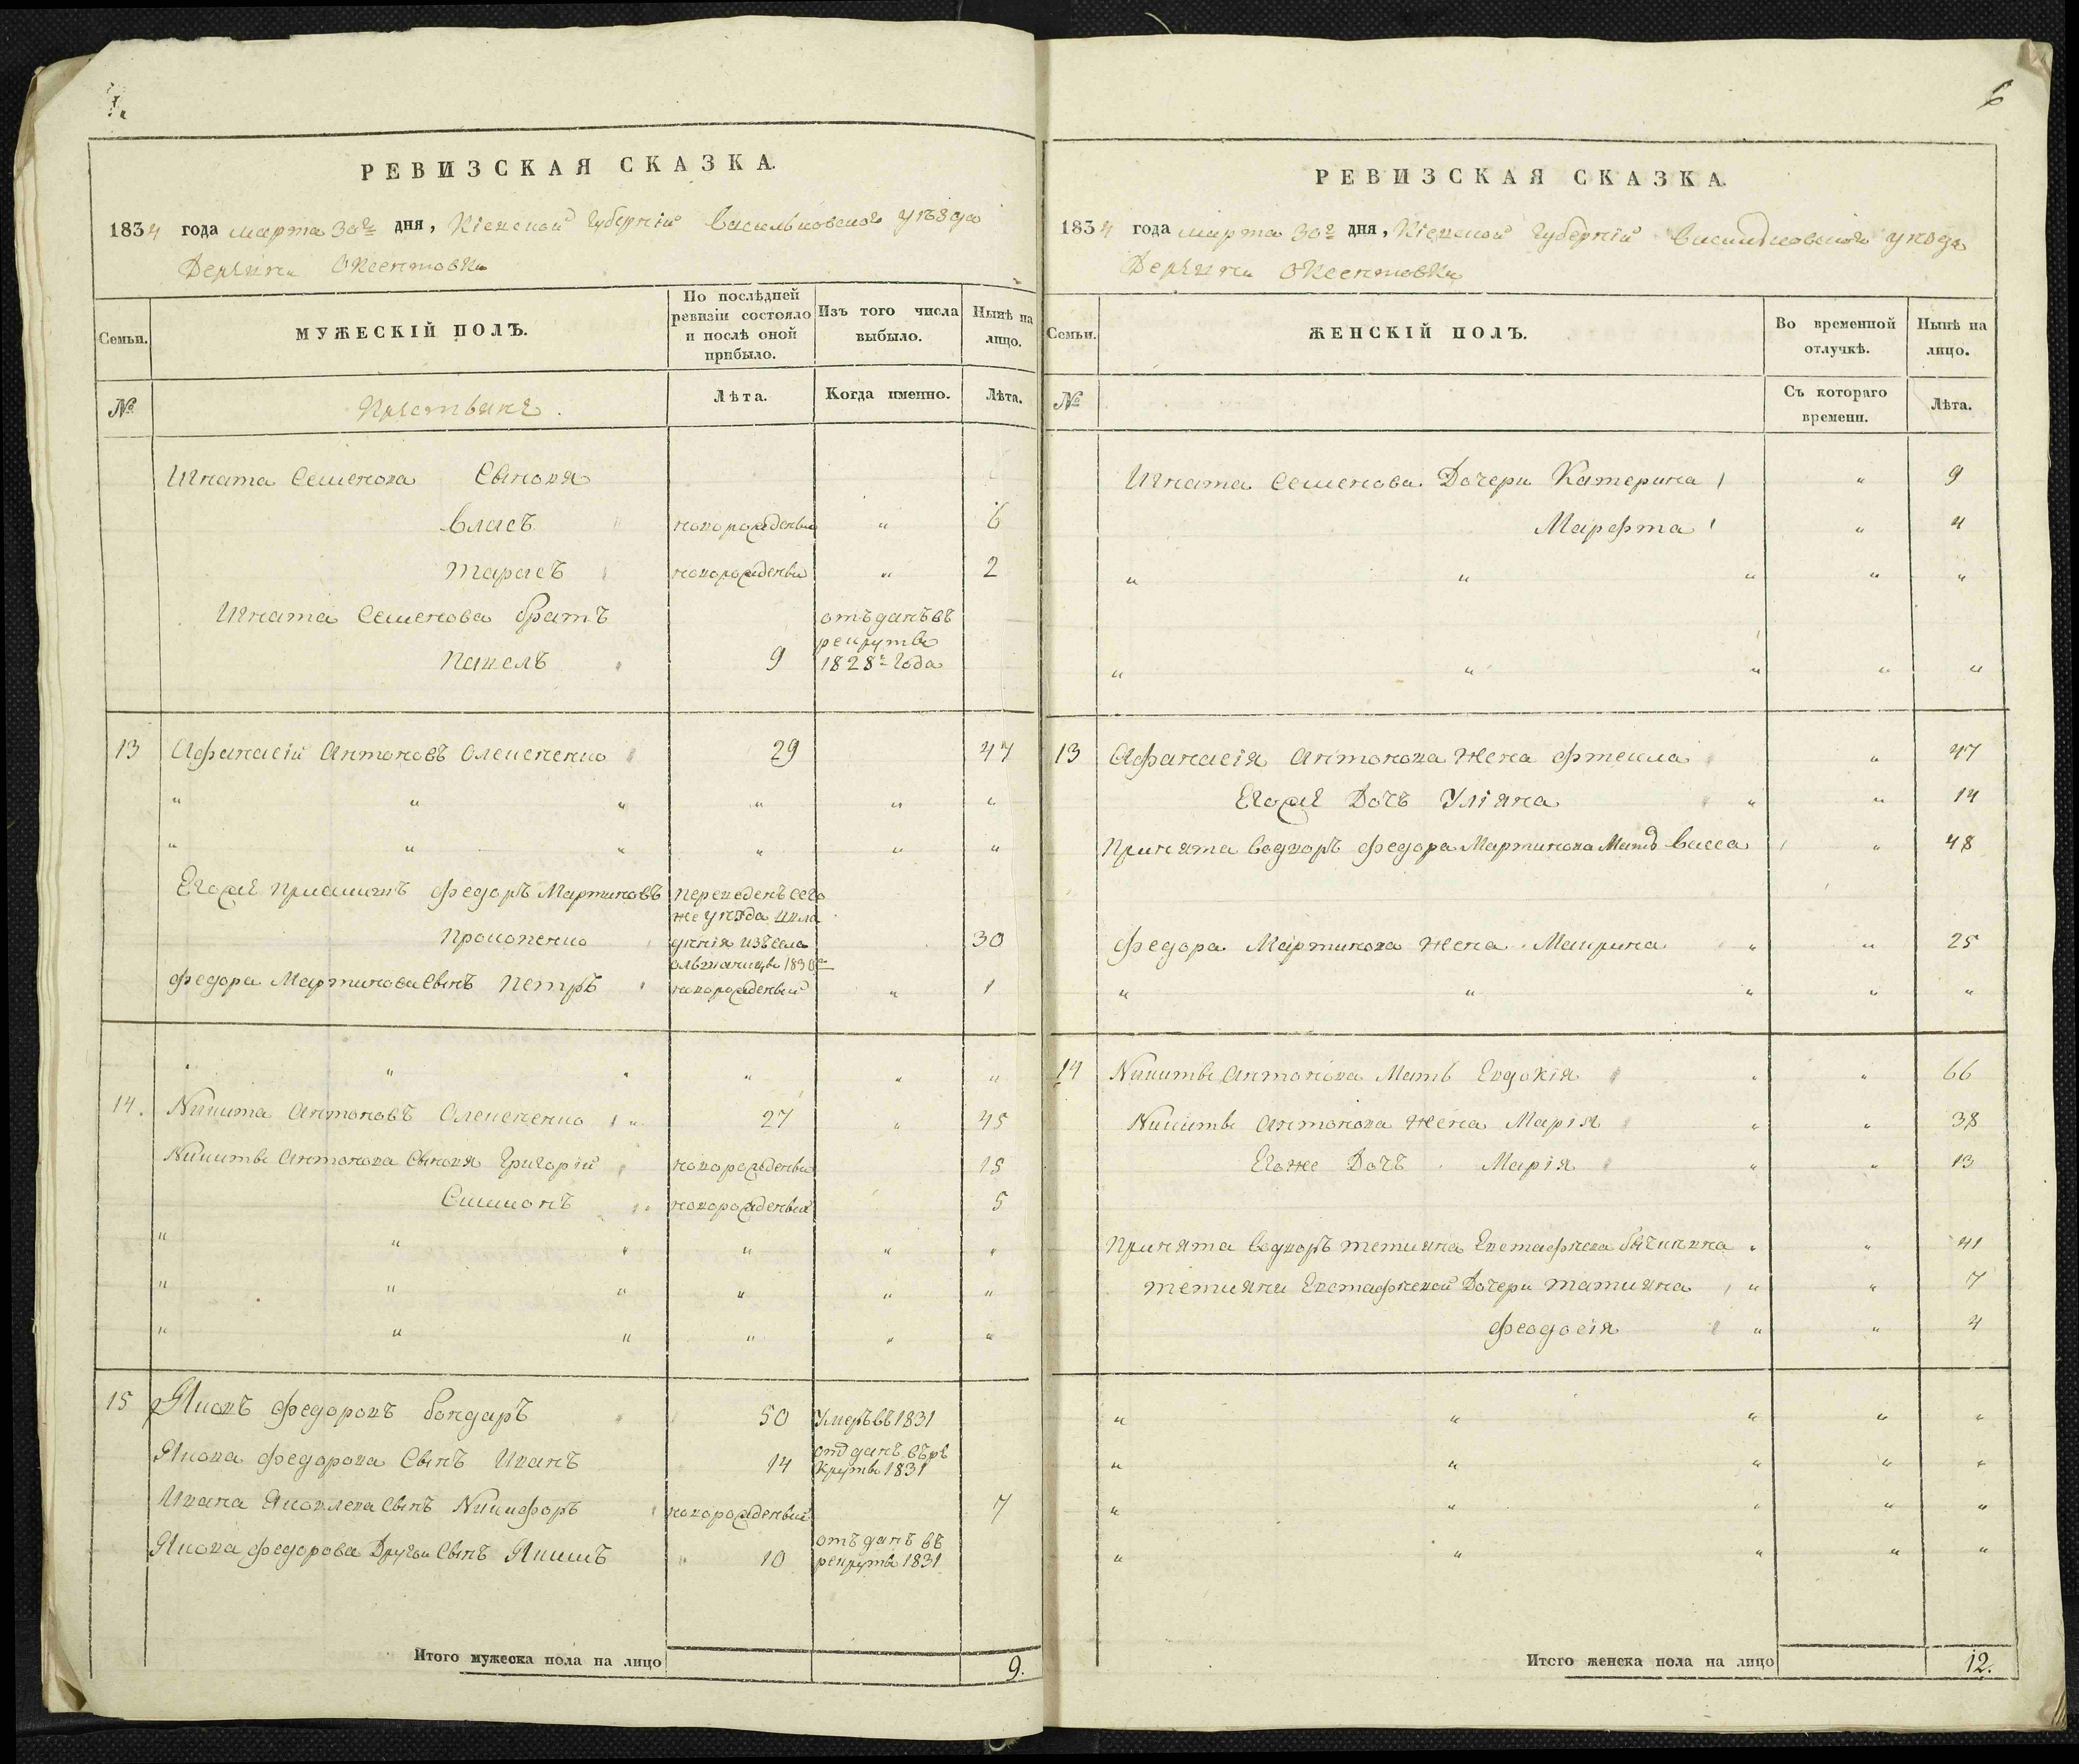 РЕВИЗСКАЯ СКАЗКА.
1834 года марта 30го дня, Кіевской Губерніи Васильковскаго уѣзда
Деревни Оксентовки
Семьи.
МУЖЕСКІЙ ПОЛЪ.
По послѣдней ревизіи состояло и послѣ оной прибыло.
Изъ того числа выбыло.
Нынѣ на лицо.
№
Крестьяне.
Лѣта.
Когда именно.
Лѣта.
Игната Семенова Сыновя
Власъ новорожденый " 6
Тарасъ новорожденый " 2
Игната Семенова братъ
Павелъ 9 отъданъ въ рекруты 1828го Года
13 Афанасій Антоновъ Олексенко 29 47
" " " " " "
" " " " " "
Егоже приймитъ Федоръ Мартиновъ
Прокопенко 30
переведенъ сего же уѣзда изъ села
Федора Мартинова Сынъ Петръ новорожденый " 1
" " " " " "
14. Никита Антоновъ Олексенко " 27 " 45
Никиты Антонова Сыновя Григорій новорожденый 15
Симионъ новорожденый 5
" " " " " "
" " " " " "
" " " " " "
15 Яковъ Федоровъ бондаръ 50 Умеръ въ 1831
Якова Федорова Сынъ Иванъ 14 отданъ въ рекруты 1831
Ивана Яковлева Сынъ Никифоръ новорожденый 7
Якова Федорова Другой Сынъ Якимъ 10 отъданъ въ рекруты 1831
Итого мужеска пола на лицо 9.
6
РЕВИЗСКАЯ СКАЗКА.
1834 года марта 30го дня, Кіевской Губерніи Васильковскаго уѣзда
Деревни Оксентовки
Семьи.
ЖЕНСКІЙ ПОЛЪ.
Во временной отлучкѣ.
Нынѣ на лицо.
№
Съ котораго времени.
Лѣта.
Игната Семенова Дочери Катерина " 9
Марфта " 4
" " " " "
" " " " "
13 Афанасія Антонова Жена Фтекла " 47
Егоже Дочъ Уліяна " " 14
Принята водворъ Федора Мартинова Мать Васса " 48
Федора Мартинова Жена Маврина " " 25
" " " " "
14 Никиты Антонова Мать Евдокія " " 66
Никиты Антонова Жена Марія " " 38
Егоже Дочъ Марія " " 13
Принята водворъ Тетияна Евстафіева " " 41
Тетияни Евстафіевой Дочери Татияна " " 7
Феодосія " " 4
" " " " "
" " " " "
" " " " "
" " " " "
Итого женска пола на лицо 12.